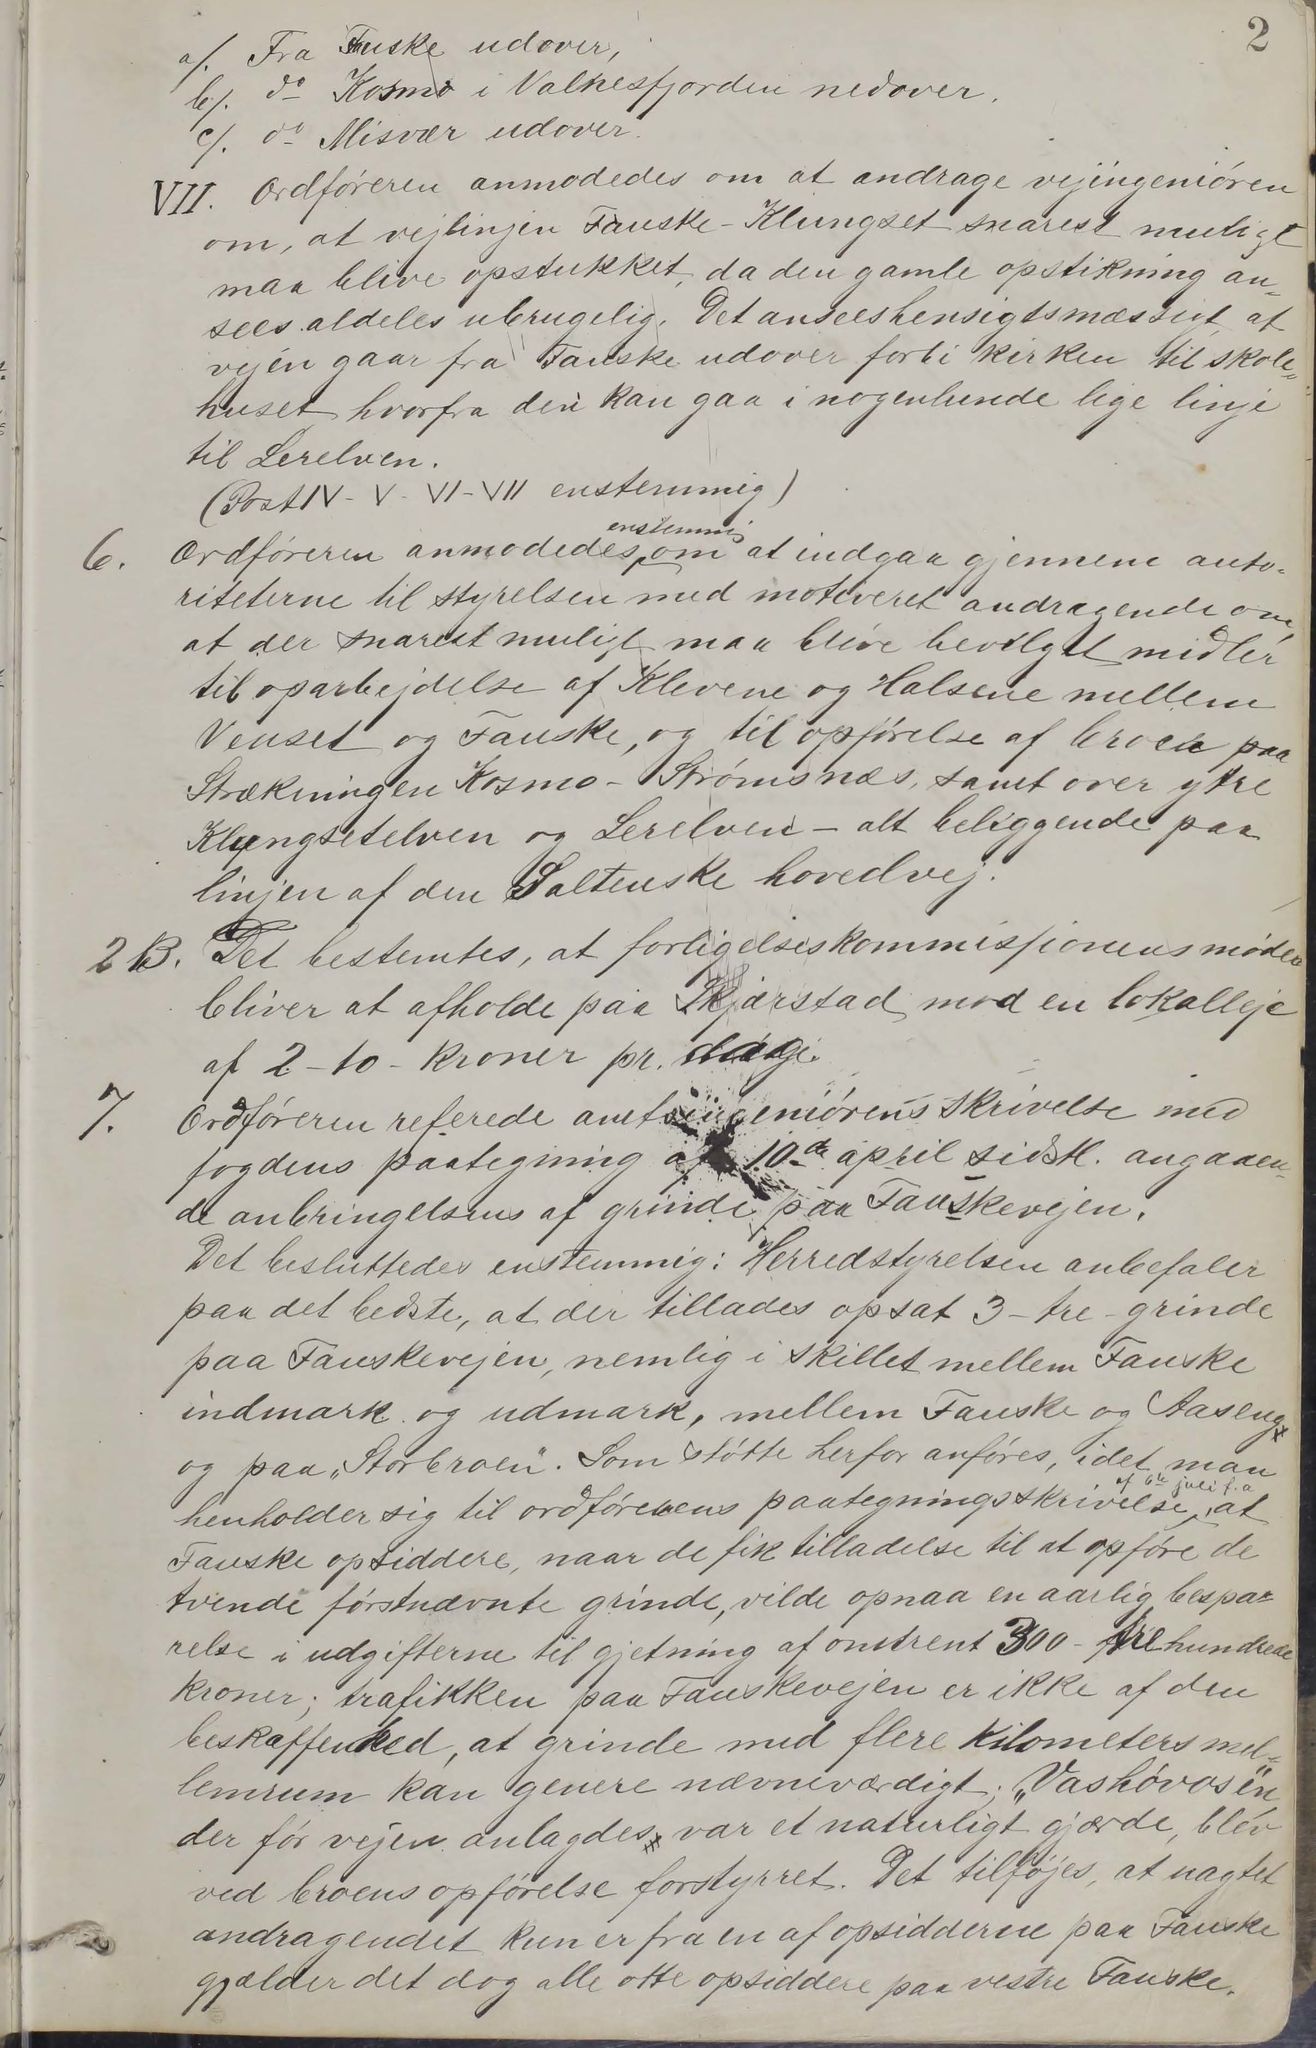 2
a/. Fra Fauske udover,
b/. do Kosmo i Valnesfjorden nedover.
c/. do Misvær udover.
VII. Ordføreren anmodedes om at andrage vejingeniøren
om, at vejlinjen Fauske-Klungset snarest muligt
maa blive opstukket, da den gamle opstikning an-
sees aldeles ubrugelig. Det ansees hensigtsmæssigt at
vejen gaar fra Fauske udover forbi kirken til skole-
huset hvorfra den kan gaa i nogenlunde lige linje
til Lerelven.
(Post IV - V - VI - VII enstemmig)
enstemmig
6. Ordføreren anmodedes om at indgaa gjennem auto-
riteterne til styrelsen med motiveret andragende om,
at der snarest muligt maa blive bevilget midler
til oparbejdelse af Klevene og Halsene mellem
Venset og Fauske, og til opførelse af broer paa
Strækningen Kosmo - Strømsnæs, samt over ytre
Klungsetelven og Lerelven - alt beliggende paa
linjen af den Saltenske hovedvej.
2 B. Det bestemtes, at forligelseskommissionens møder
bliver at afholde paa Skjærstad mod en lokalleje
af 2 - to - kroner pr. dag.
7. Ordføreren referede amtsingeniørens skrivelse med
fogdens paategning af 10de april sidstl. angaaen-
de anbringelsens af grinde paa Fauskevejen.
Det besluttedes enstemmig: Herredstyrelsen anbefaler
paa det bedste, at der tillades opsat 3 - tre - grinde
paa Fauskevejen, nemlig i skillet mellem Fauske
indmark og udmark, mellem Fauske og Aaseng
og paa „Storbroen“. Som støtte herfor anføres, idet man
af 6te juli f.a
henholder sig til ordførerens paategningsskrivelse, at
Fauske opsiddere, naar de fik tilladelse til at opføre de
tvende førstnævnte grinde, vilde opnaa en aarlig bespa-
relse i udgifterne til gjetning af omtrent 300 - tre hundrede
kroner; trafikken paa Fauskevejen er ikke af den
beskaffenhed, at grinde med flere kilometers mel-
lemrum kan genere nævneværdigt; „Vashóvosen“
der før vejen anlagdes var et naturligt gjærde, blev
ved broens opførelse forstyrret. Det tilføjes, at uagtet
andragendet kun er fra en af opsidderne paa Fauske
gjælder det dog alle otte opsiddere paa vestre Fauske.